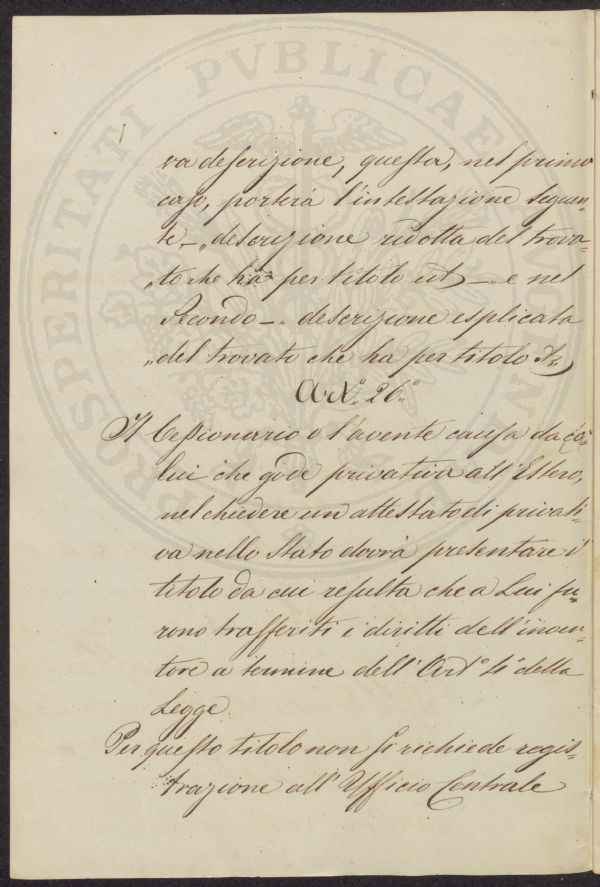 PROSPERITATI PVBLICAE
va descrizione, questa, nel primo
caso, porterà l'intestazione seguen-
te - „descrizione ridotta del trova-
„to che ha per titolo ut - „ e nel
Secondo - „ descrizione esplicata
„del trovato che ha per titolo
Art° 26°
Il Cessionario o l'avente causa da co-
lui che gode privativa all'Estero,
nel chiedere un attestato di privati-
va nello Stato dovrà presentare il
titolo da cui resulta che a Lui fu-
rono trasferiti i diritti dell'inven-
tore a termine dell'Art° 4° della
Legge.
Per questo titolo non si richiede regis-
trazione all'Ufficio Centrale